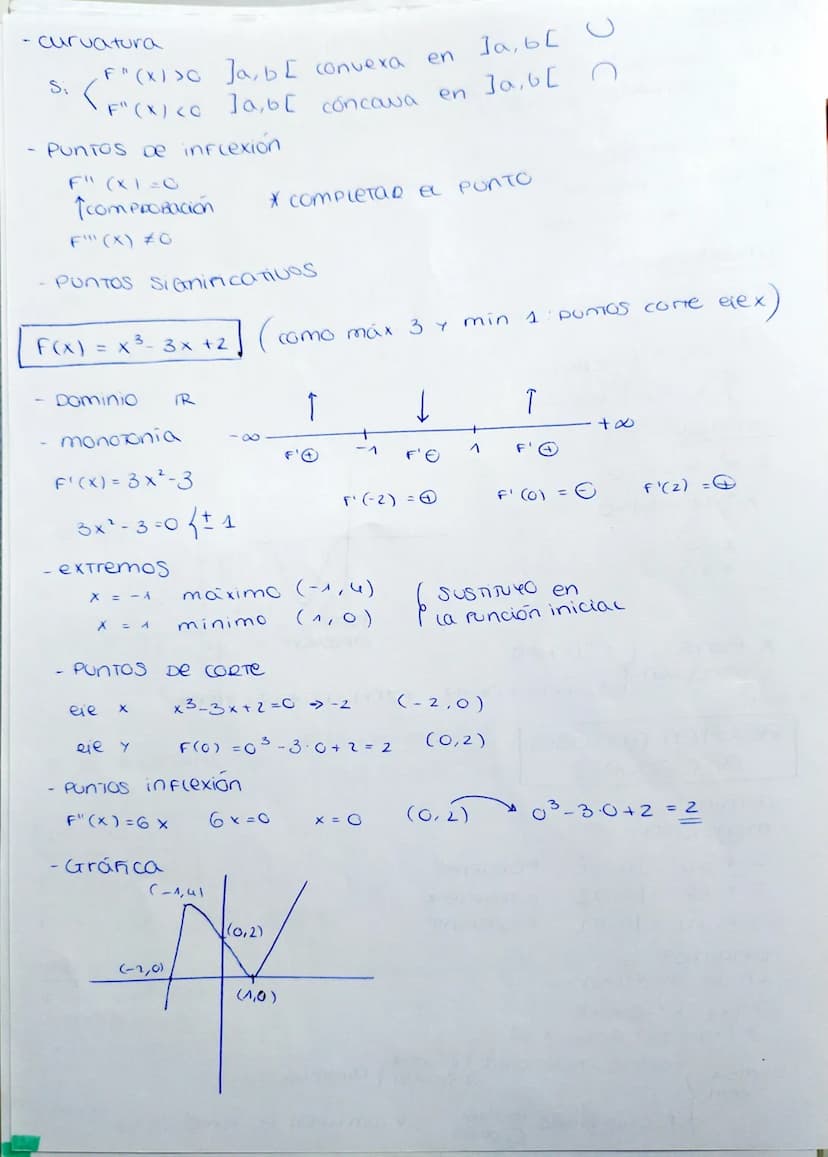 - curvatura
Si { F''(x) > 0 ]a,b[ convexa en ]a,b[ ∪
F''(x) < 0 ]a,b[ cóncava en ]a,b[ ∩
- Puntos de inflexión
F''(x) = 0
↑comprobación * completar el punto
F'''(x) ≠ 0
- Puntos significativos
F(x) = x³ - 3x + 2 (como máx 3 y mín 1 puntos corte eje x)
- Dominio ℝ
↑ ↓ ↑
- monotonía -∞ +∞
F'⊕ -1 F'⊖ 1 F'⊕
F'(x) = 3x² - 3
F'(-2) = ⊕ F'(0) = ⊖ F'(2) = ⊕
3x² - 3 = 0 { ± 1
- extremos
x = -1 máximo (-1, 4) { sustituyo en
x = 1 mínimo (1, 0) la función inicial
- Puntos de corte
eje x x³ - 3x + 2 = 0 → -2 (-2, 0)
eje y F(0) = 0³ - 3·0 + 2 = 2 (0, 2)
- Puntos inflexión
F''(x) = 6x 6x = 0 x = 0 (0, 2) → 0³ - 3·0 + 2 = 2
- Gráfica
(-1,4)
(0,2)
(-2,0)
(1,0)